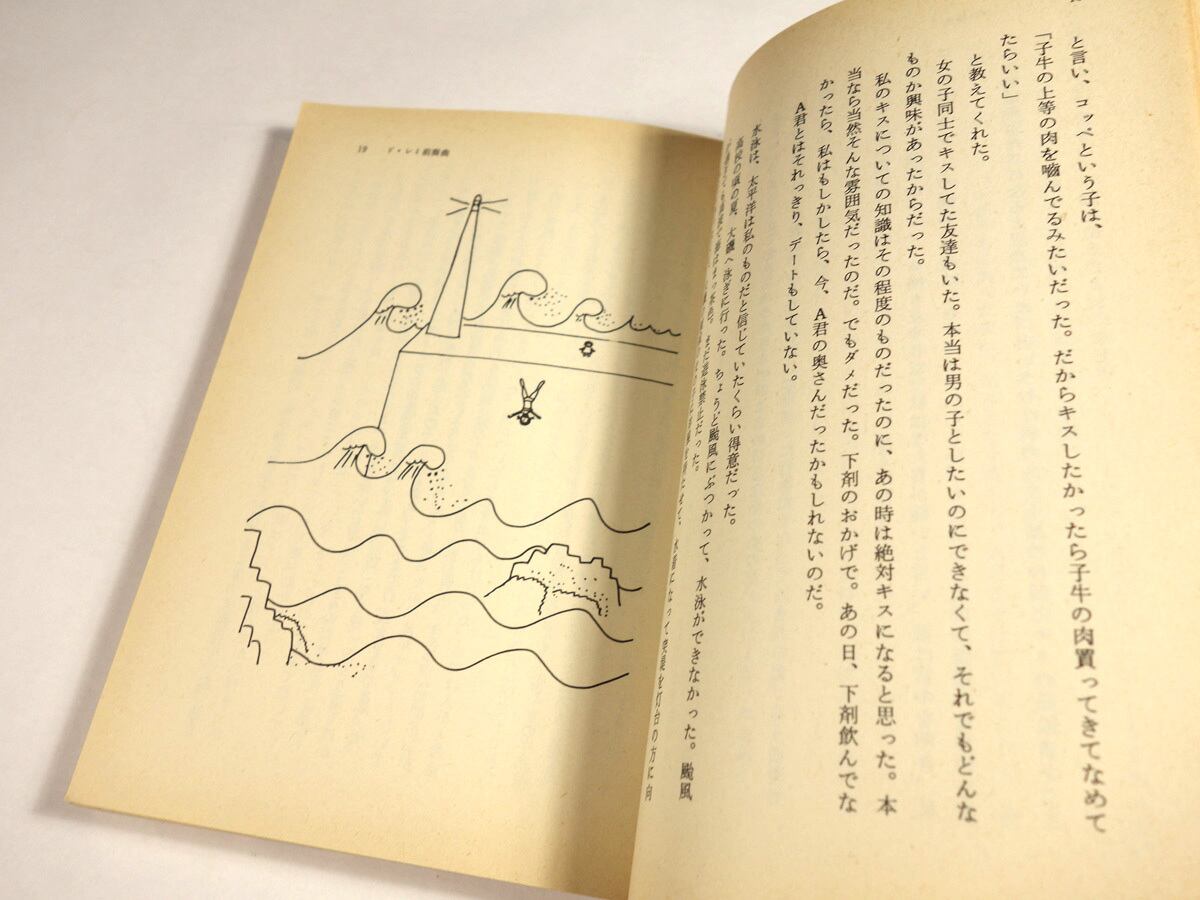 と言い、コッペという子は、
「子牛の上等の肉を嚙んでるみたいだった。だからキスしたかったら子牛の肉買ってきてなめて
たらいい」
と教えてくれた。
女の子同士でキスしてた友達もいた。本当は男の子としたいのにできなくて、それでもどんな
ものか興味があったからだった。
私のキスについての知識はその程度のものだったのに、あの時は絶対キスになると思った。本
当なら当然そんな雰囲気だったのだ。でもダメだった。下剤のおかげで。あの日、下剤飲んでな
かったら、私はもしかしたら、今、A君の奥さんだったかもしれないのだ。
A君とはそれっきり、デートもしていない。
水泳は、太平洋は私のものだと信じていたくらい得意だった。
高校の頃の夏、大磯へ泳ぎに行った。ちょうど颱風にぶつかって、水泳ができなかった。颱風
まだ遊泳禁止だった。
水着になって突堤を灯台の方に向
19 ド・レミ前奏曲